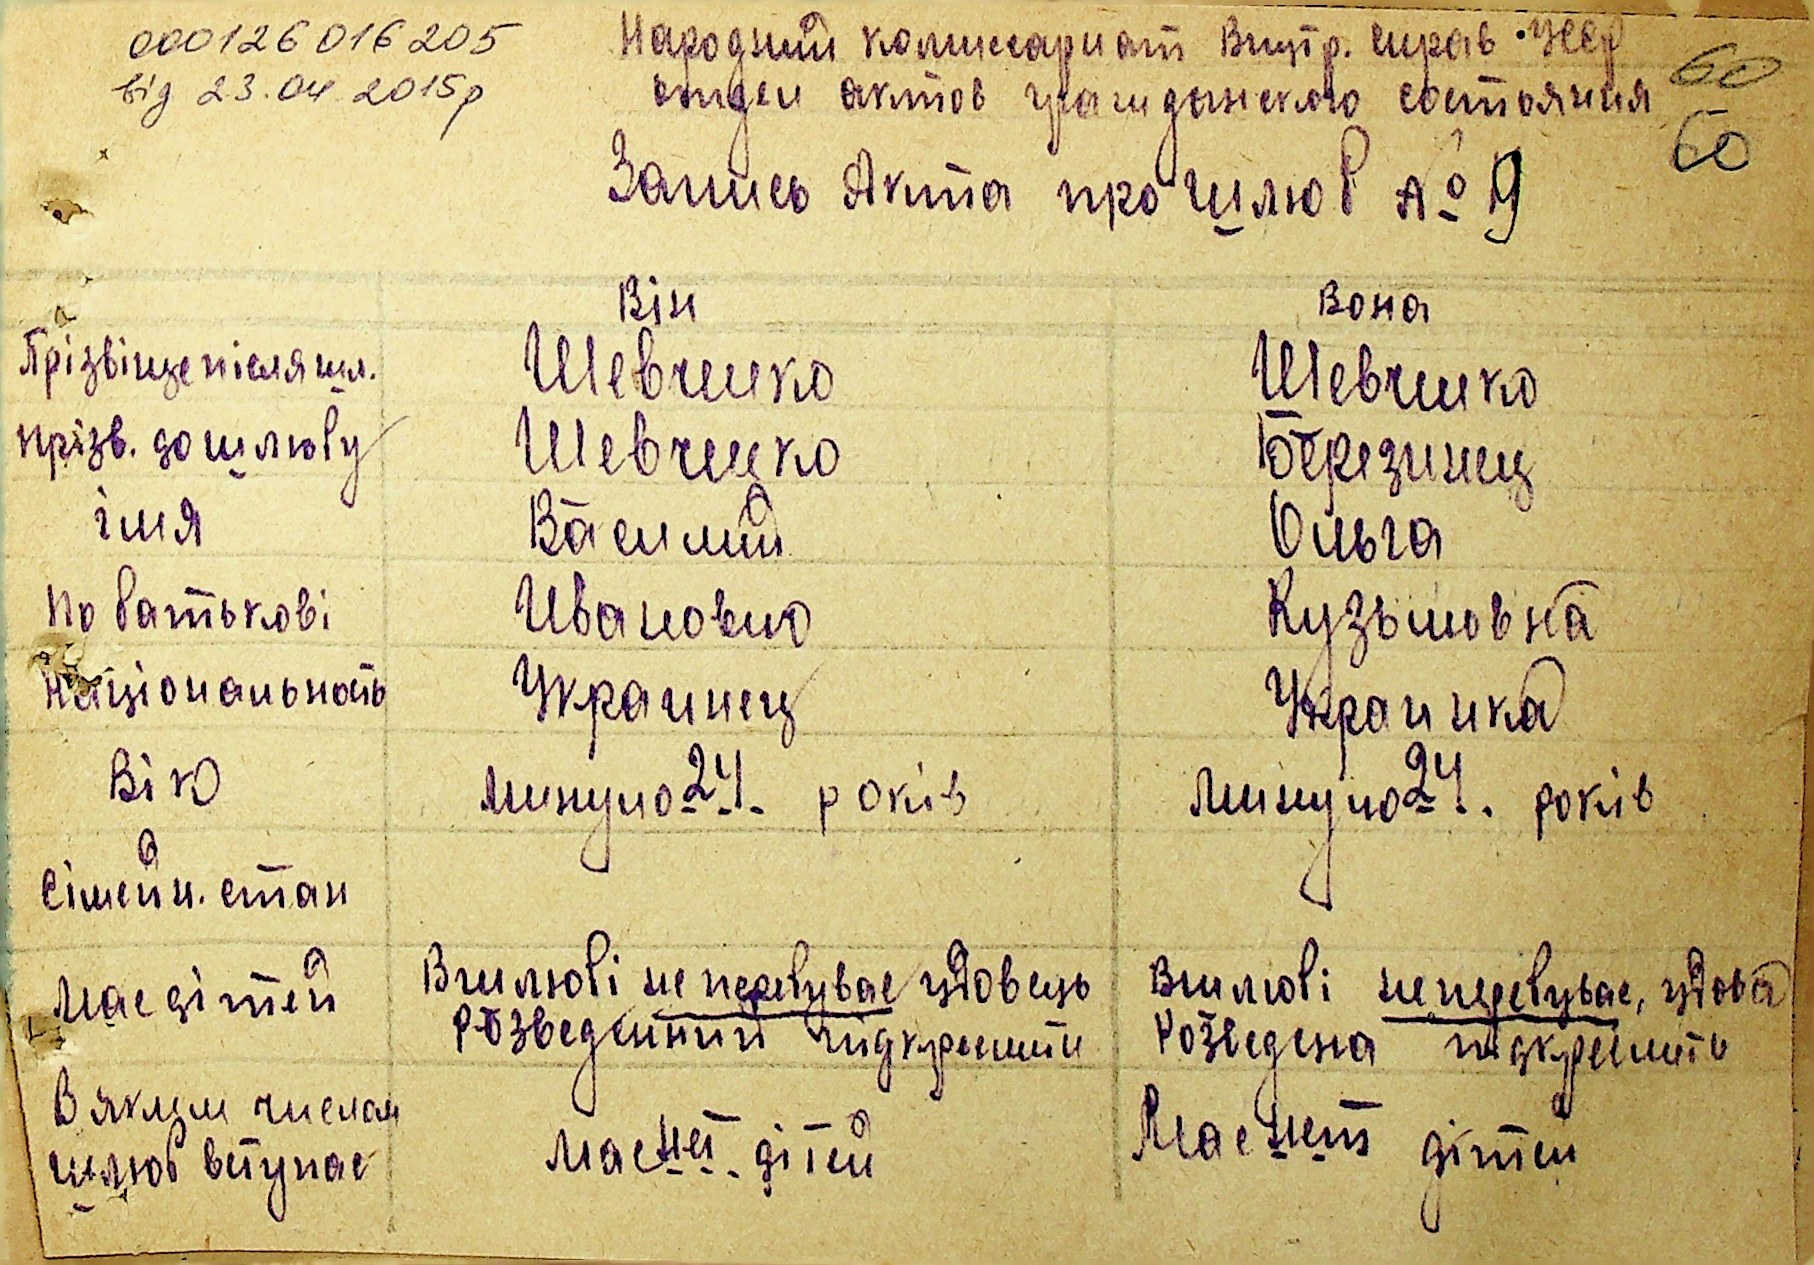 000126016205
від 23.04.2015р
60
60
Народний комиссариат Внутр. справ. УССР
отдел актов гражданского состояния
Запись Акта про шлюб № 9
Він Вона
Прізвище після шл. Шевченко Шевченко
прізв. до шлюбу Шевченко Березинец
імя Василий Ольга
По батькові Иванович Кузьмовна
Національность Украинец Украинка
Вік минуло 24. років минуло 24. років
Сімейн. стан
Має дітей В шлюбі не перебуває удовець В шлюбі не перебуває, удова
Розведенний підкреслити Розведена підкреслити
В яклим числом
шлюб вступає має нет. дітей Має нет дітей